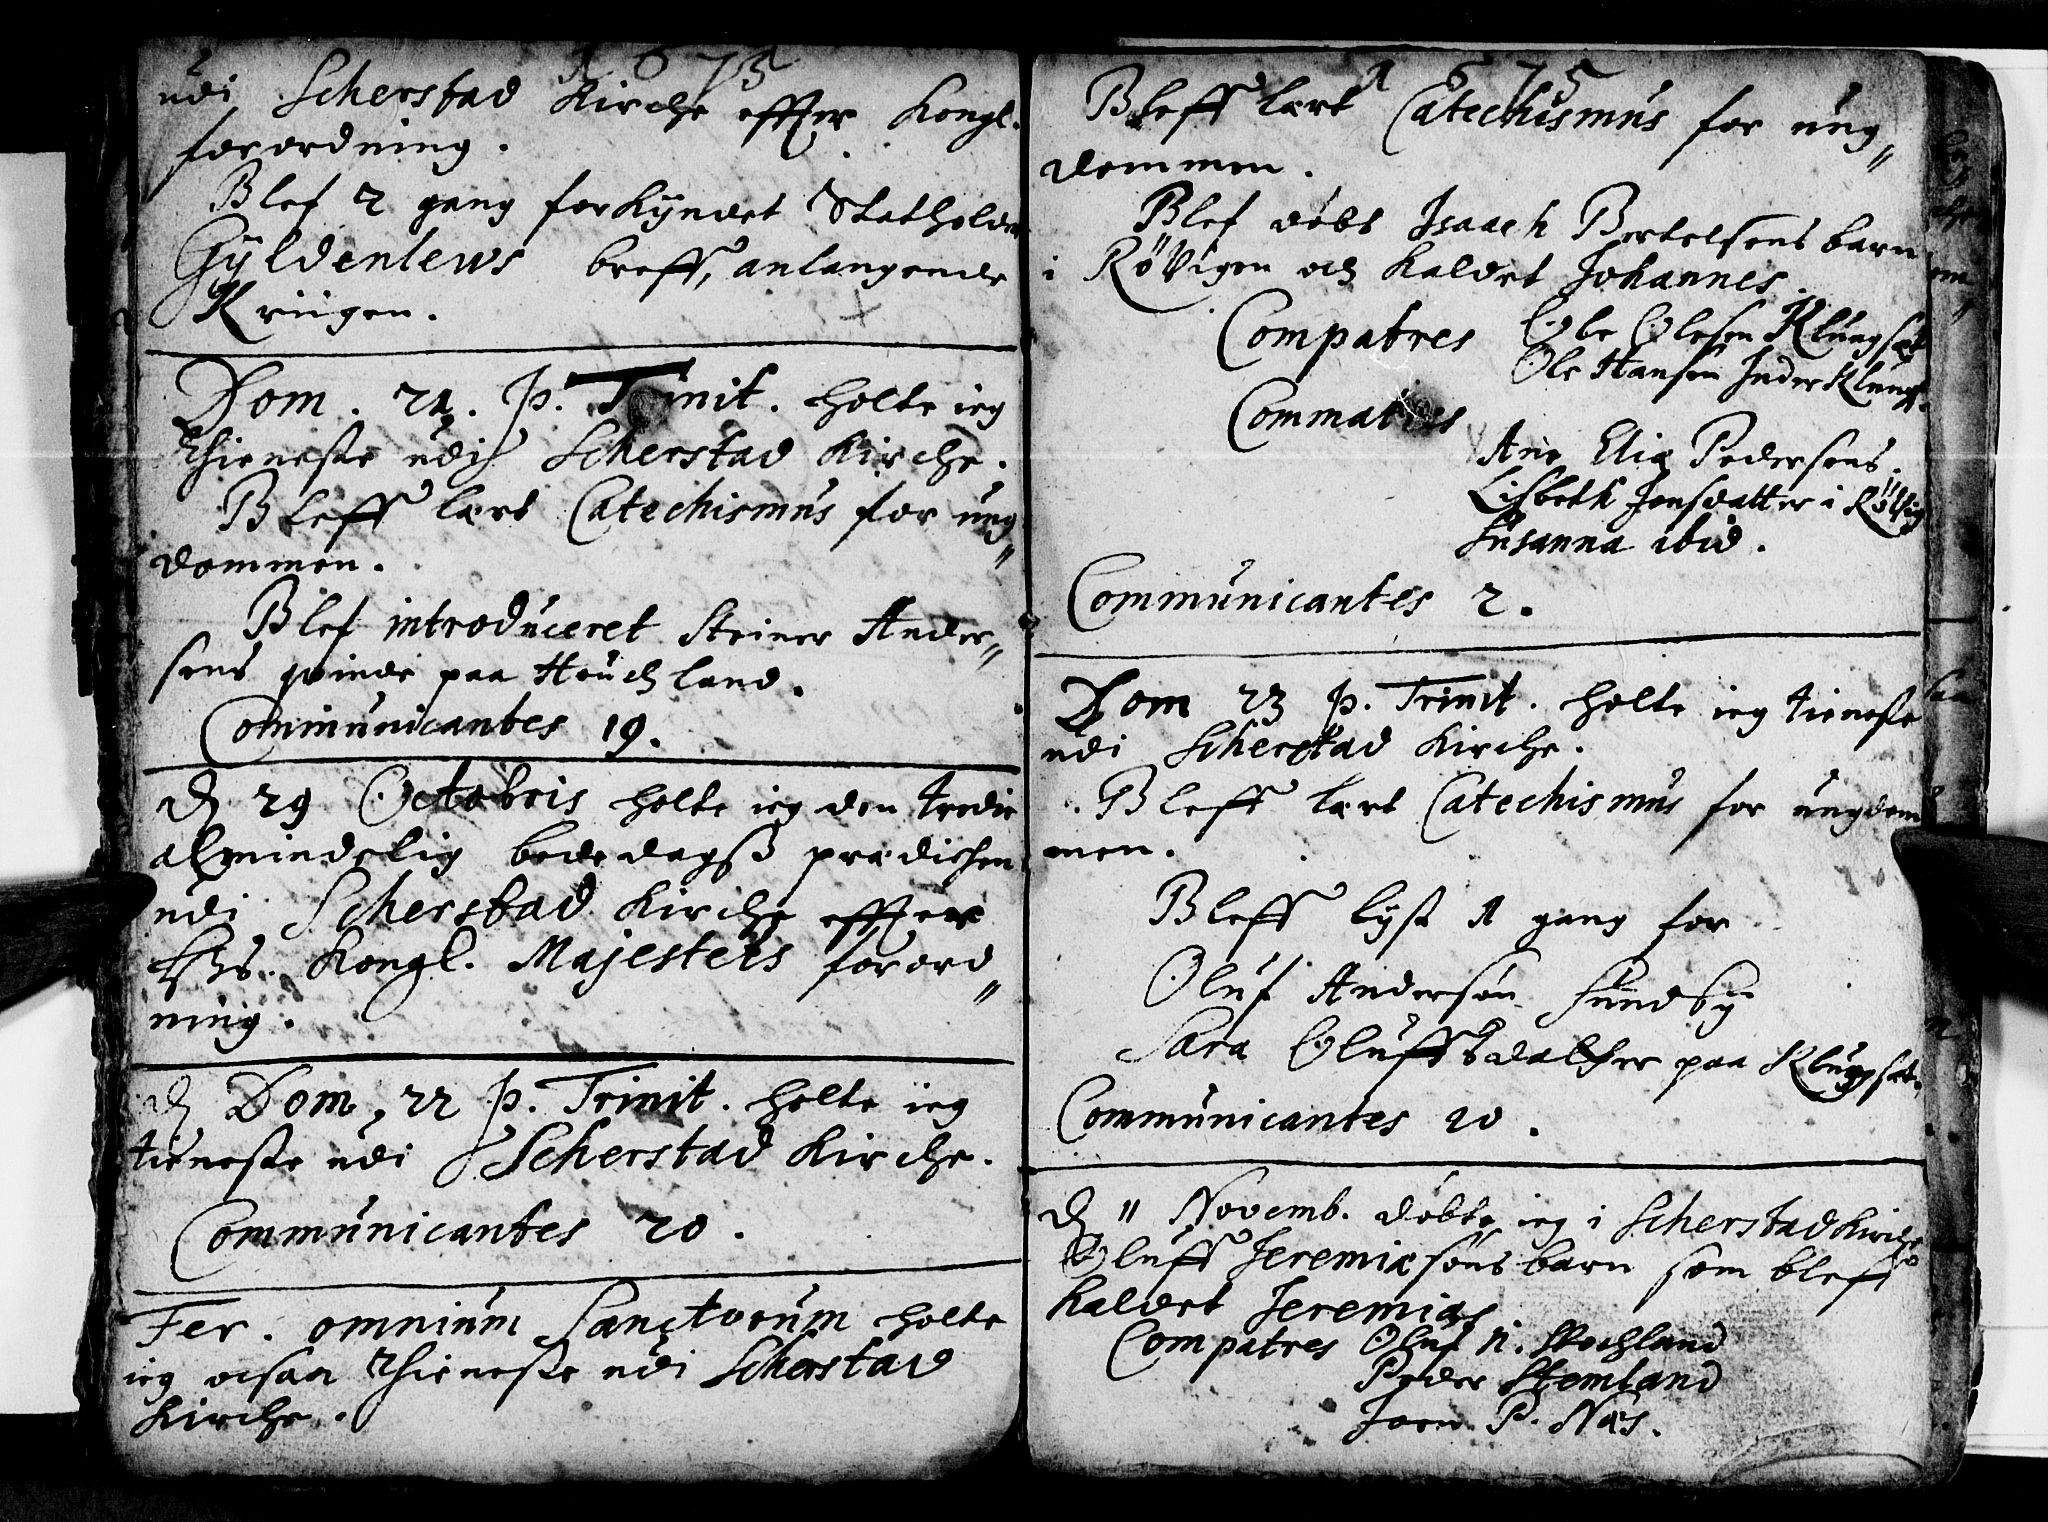 1675
udi Scherstad Kirche effter Kongl.
forordning.
Blef 2 gang forkyndet Statholder
Gyldenlews breff, anlangende
Kriigen.
Dom. 21. p. Trinit. holte ieg
thieneste udi Scherstad Kirche.
Bleff lært Catechismus for ung"
dommen.
Blef introduceret Steiner Ander"
sens qvinde paa Houchland.
Communicantes 19.
D 29 Octobris holte ieg den tredie
almindelig bededagss prædichen
udi Scherstad Kirche effter
Hs. Kongl. Majestets forord"
ning.
D Dom. 22 p. Trinit. holte ieg
tieneste udi Scherstad Kirche.
Communicantes 20.
Fer. omnium Sanctorum holte
ieg ocsaa thieneste udi Scherstad
Kirche.
1675
Bleff lært Catechismus for ung"
dommen.
Blef döbt Isaach Bertelsens barn
i Rövigen och kaldet Johannes.
Compatres Ole Olesen Klungset
Ole Hansen Inder Klungs.
Commatres
Ane Eliæ Pedersens.
Lisbeth Jensdatter i Rövig
Susanna ibid.
Communicantes 2.
Dom 23 p. Trinit. holte ieg tieneste
udi Scherstad Kirche.
Bleff lært Catechismus for ungdom
men.
Bleff lyst 1 gang for
Oluf Andersön Sundby
Sara Oluffsdatter paa Klungset.
Communicantes 20.
D 11 Novemb. döbte ieg i Scherstad Kirche
Oluff Jeremiæsöns barn som bleff
kaldet Jeremias
Compatres Oluf N. Stochland
Peder Stemland
Joen P. Næs.